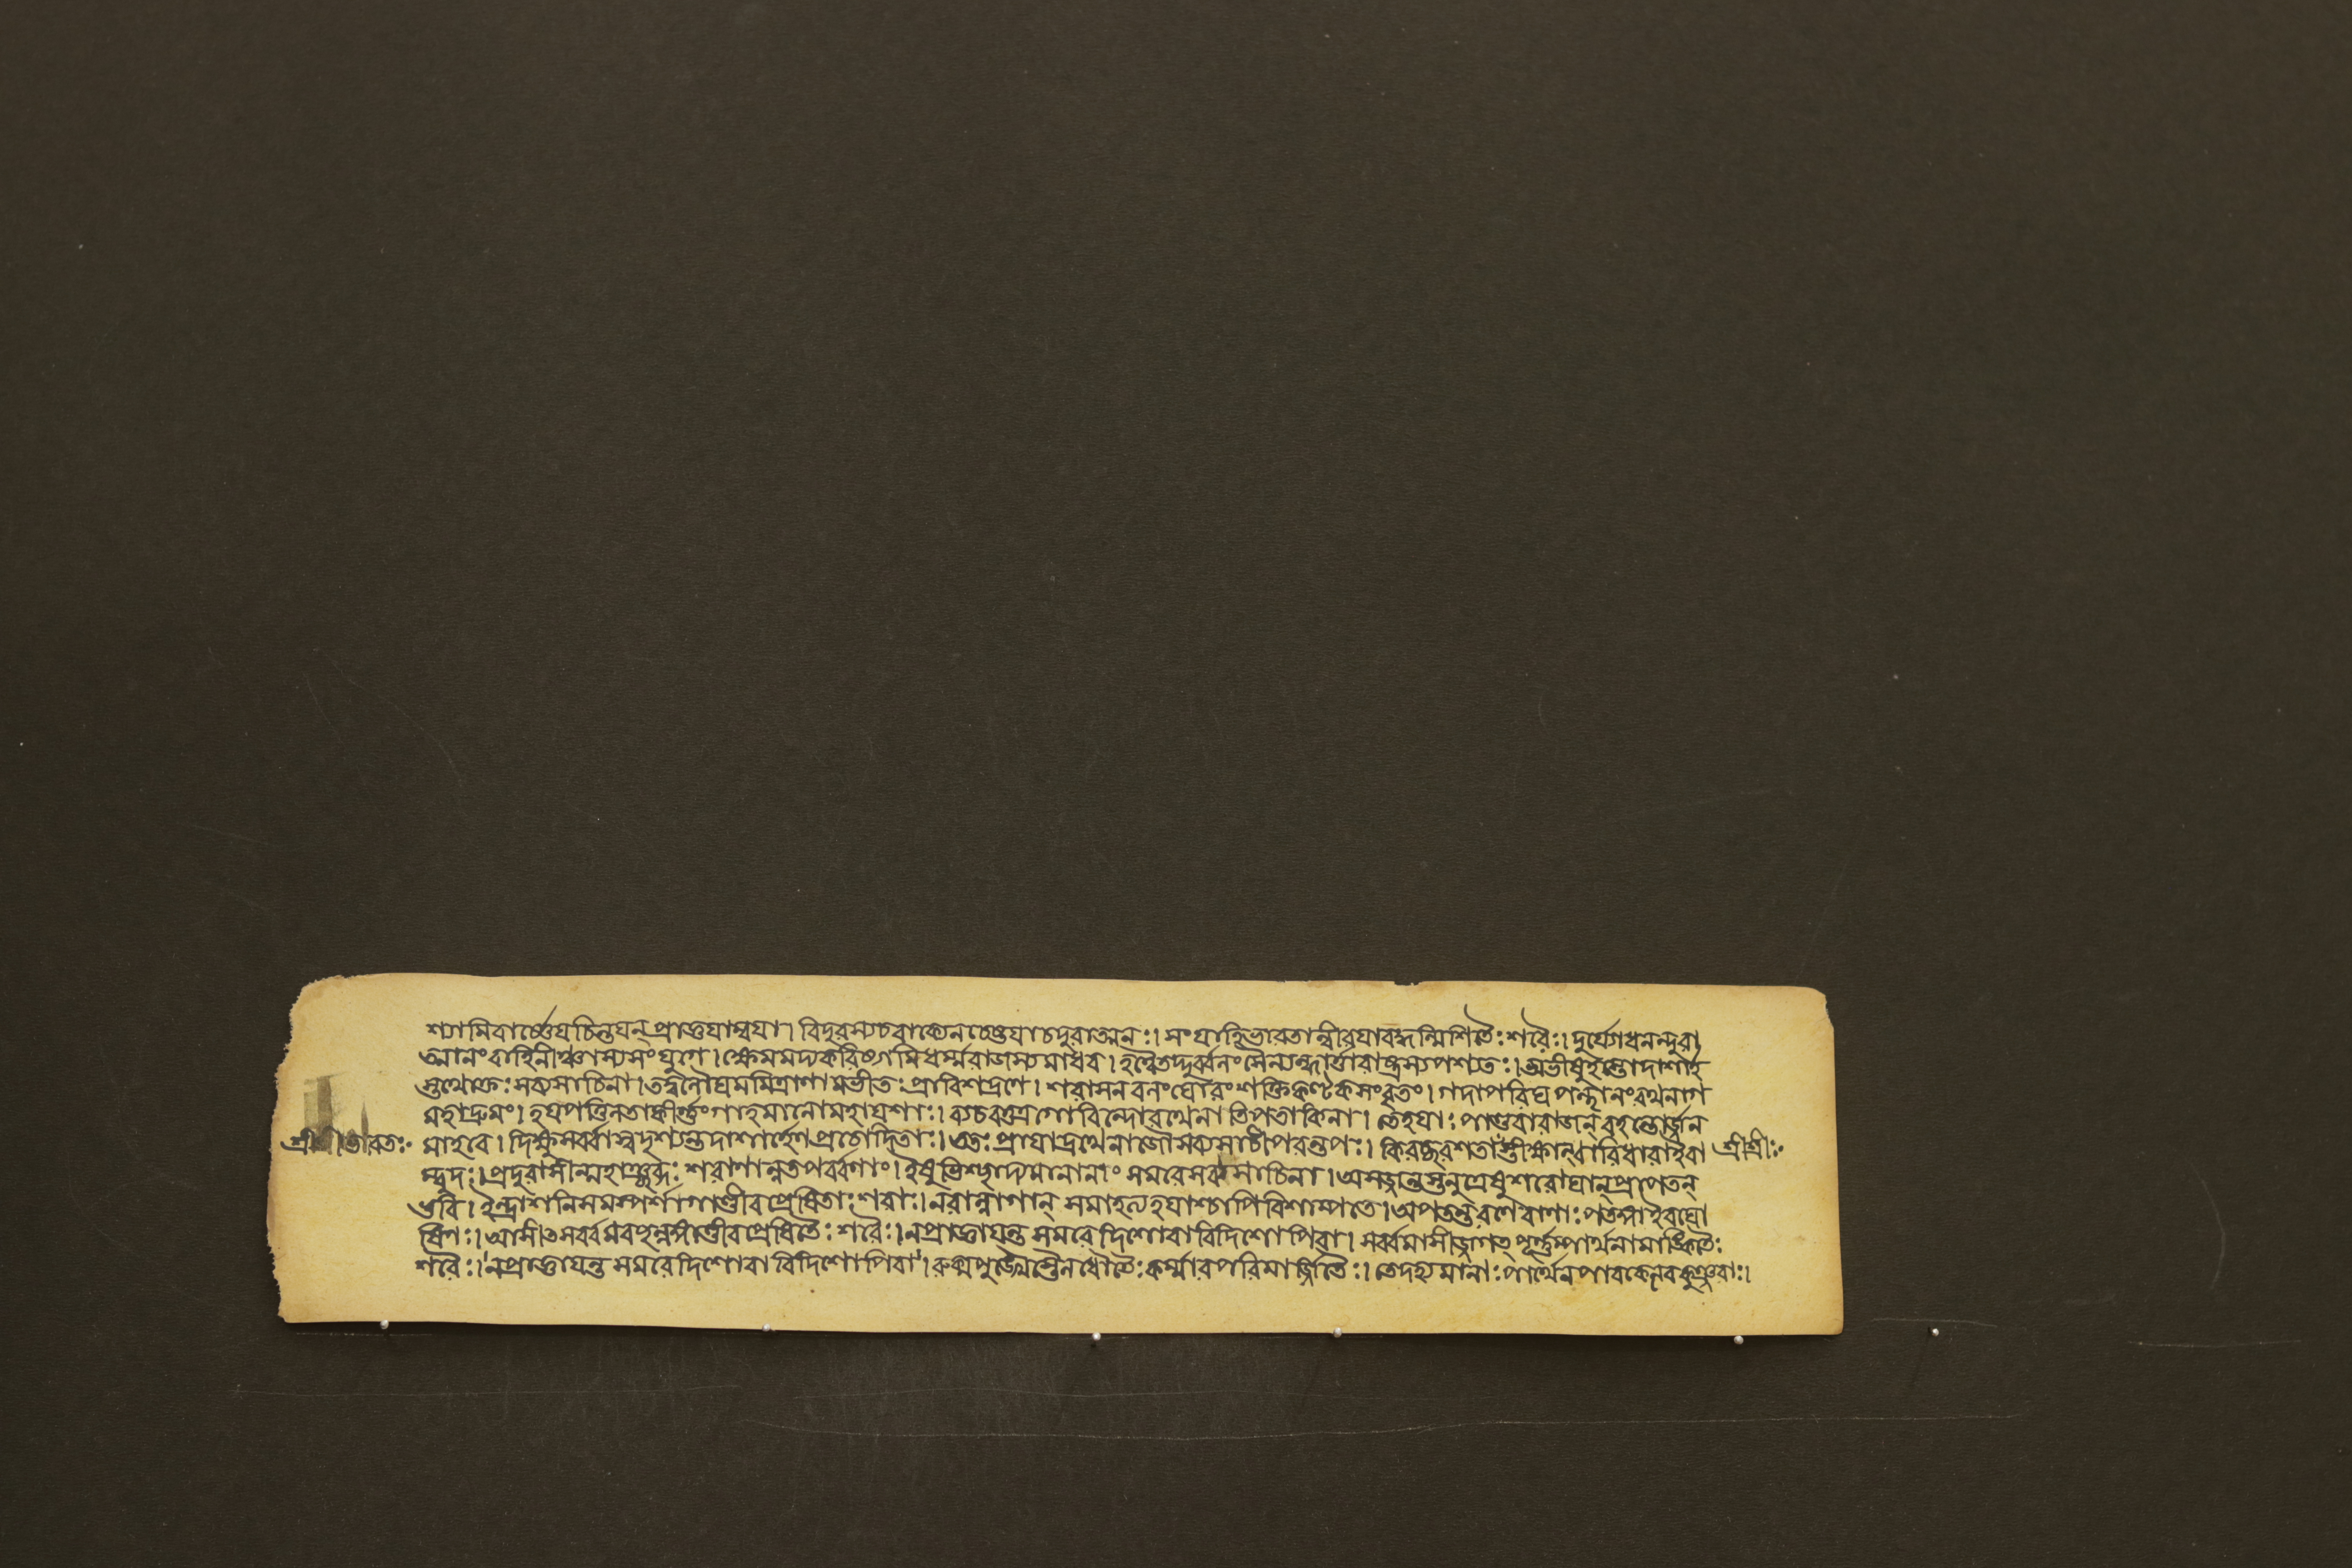 শ্যামিবার্ষ্ণেয়চিন্তয়ন্ প্রাজ্ঞয়াম্বয়া। বিদুরস্যচবাক্যেনচেষ্টয়াচদুরাত্মনঃ। সংযাহিভারতান্বীরযাবদ্ধন্মিশিতৈঃশরৈঃ। দুর্যোধনন্দুরা
ত্মানংবাহিনীঞ্চাস্যসংযুগে। ক্ষেমমদ্যকরিষ্যামিধর্ম্মরাজস্যমাধব। হত্বৈতদ্দুর্ব্বলংসৈন্যন্ধার্ত্তরাষ্ট্রস্যপশ্যতঃ। অভীষুহস্তোদাশার্হ
স্তথোক্তঃসব্যসাচিনা। তদ্বলৌঘমমিত্রাণামভীতঃপ্রাবিশদ্রণে। শরাসনবনংঘোরংশক্তিকণ্টকসংবৃতং। গদাপরিঘপন্থানংরথনাগ
মহাদ্রুমং। হয়পত্তিলতাকীর্ণ্ণংগাহমানোমহাযশাঃ। ব্যচরত্তত্রগোবিন্দোরথেনাতিপতাকিনা। তেহয়াঃপাণ্ডুরারাজন্বহন্তোর্জ্জুন
শ্রীশ্রীভারতঃ মাহবে। দিক্ষুসর্ব্বাস্বদৃশ্যন্তদাশার্হেণপ্রচোদিতাঃ। ততঃপ্রাযাদ্রথেনাজৌসব্যসাচীপরন্তপঃ। কিরঞ্ছরশতাংস্তীক্ষ্ণান্বারিধারাইবা শ্রীশ্রীঃ
ম্বুদঃ। প্রাদুরাসীন্মহাঞ্ছব্দঃশরাণান্নতপর্ব্বণাং। ইষুভিশ্ছাদ্যমানানাংসমরেসব্যসাচিনা। অসজ্জন্তস্তনুত্রেষুশরৌঘান্প্রাপতন্
ভুবি। ইন্দ্রাশনিসমস্পর্শাগাণ্ডীবপ্রেষিতাঃশরাঃ। নরান্নাগান্ সমাহত্যহয়াশ্চাপিবিশাম্পতে। অপতন্তরণেবাণাঃপতঙ্গাইবঘো
ষিণঃ। আসীৎসর্ব্বমবচ্ছন্নঙ্গাণ্ডীবপ্রেষিতৈঃশরৈঃ। নপ্রাজ্ঞায়ন্তসমরেদিশোবাবিদিশোপিবা। সর্ব্বমাসীজ্জগৎ পূর্ণ্ণম্পার্থনামাঙ্কিতৈঃ
শরৈঃ। নপ্রাজ্ঞায়ন্তসমরেদিশোবাবিদিশোপিবা। রুক্মপুঙ্খৈস্তৈলধৌতৈঃকর্ম্মারপরিমার্জ্জিতৈঃ। তেদহ্যমানাঃপার্থেনপাবকেনেবকুঞ্জরাঃ।